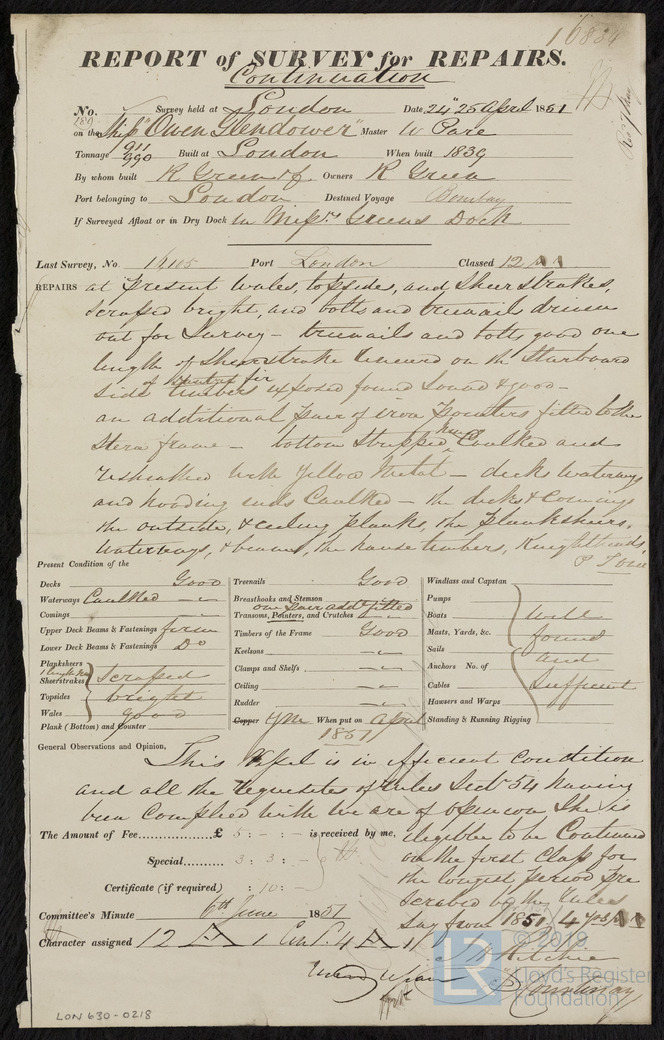 16834
REPORT of SURVEY for REPAIRS.
Continuation
No. Survey held at London Date, 24th 25 April 1851
on the Ship "Owen Glendower" Master W Pare
Tonnage 911 990 Built at London When built 1839
By whom built R Green Owners R Green
Port belonging to London Destined Voyage Bombay
If Surveyed Afloat or in Dry Dock in Messrs Greens Dock
Last Survey, No. 16,105 Port London Classed 12 A1
REPAIRS at present Wales, topsides, and Sheerstrakes,
scraped bright, and bolts and treenails driven
out for Survey - treenails and bolts good one
length of Sheerstrake renewed on the Starboard
side of timbers exposed found Sound & good -
an additional pair of iron pointers fitted to the
Stern frame - bottom Stripped Caulked and
resheathed with Yellow Metal - decks waterways
and hooding ends Caulked - the decks & Comings
the outside, & ceiling plank, the Planksheers,
Waterways, & beams, the hawse timbers, Knightheads,
P Tover
Present Condition of the
Decks Good
Waterways Caulked
Comings
Upper Deck Beams & Fastenings firm
Lower Deck Beams & Fastenings Do
Planksheers
Sheerstrakes scraped
Topsides bright
Wales good
Plank (Bottom) and Counter
Treenails Good
Breasthooks and Stemson
one pair addl fitted
Transoms, Pointers, and Crutches
Timbers of the Frame Good
Keelsons
Clamps and Shelfs
Ceiling
Rudder
Copper YM When put on April
1851
Windlass and Capstan
Pumps
Boats Well
Masts, Yards, &c. found
Sails and
Anchors No. of
Cables Sufficient
Hawsers and Warps
Standing & Running Rigging
General Observations and Opinion, This Vessel is in efficient condition
and all the requisites of Rules Sect 54 having
been Complied with we are of opinion She is
eligible to be Continued
on the first Class for
the longest period Pre
scribed by the Rules
Say from 1851 4 yrs A1
The Amount of Fee £ 5 : - : - is received by me,
Special 3 : 3 : -
Certificate (if required) : 10 : -
Committee's Minute 6th June 1851
Character assigned 12 A 1 Cont. 4 A 1
J H Ritchie
P Courtenay
LR
© 2019
Lloyd's Register
Foundation
LON 630-0218